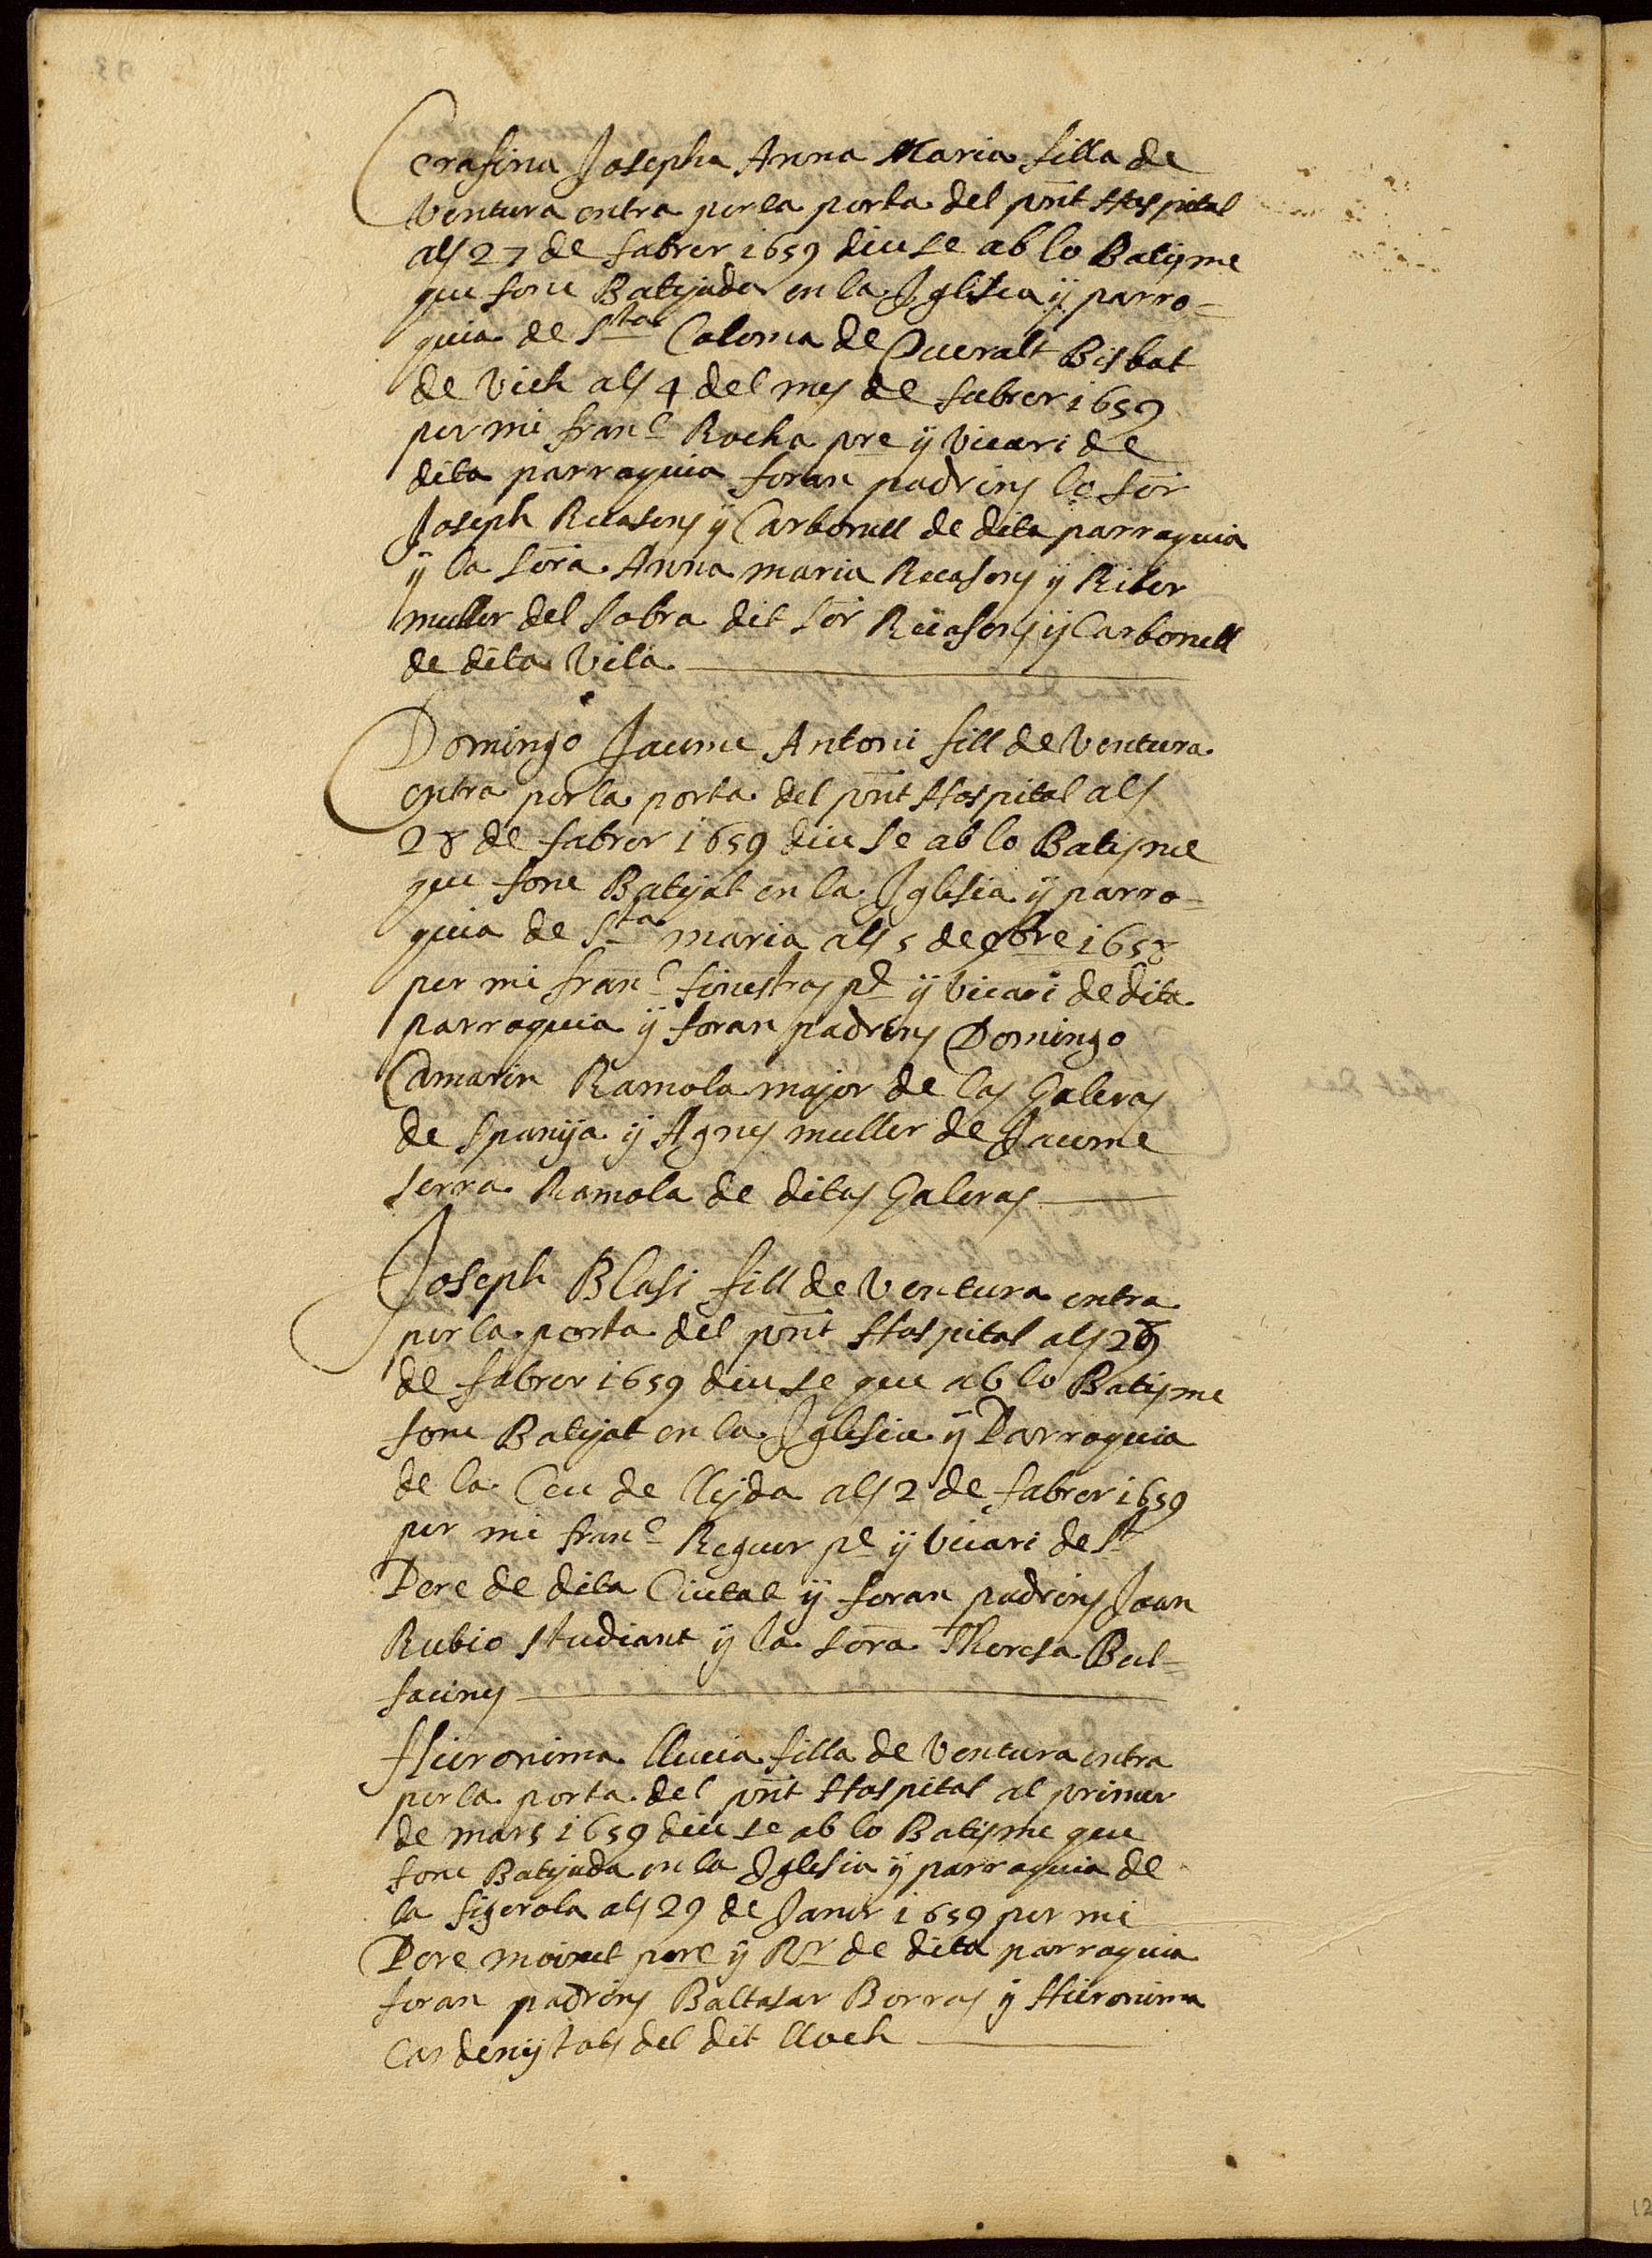 Cerafina Josepha Anna Maria filla de
Ventura entra per la porta del pnt Hospital
als 27 de fabrer 1659 diuse ab lo Batisme
que fonc Batejada en la Iglesia y parro=
quia de Sta Coloma de Queralt Bisbat
de Vich als 4 del mes de fabrer 1659
per mi franc Rocha pre y Vicari de
dita parroquia foran padrins lo sor
Joseph Recasens y Carbonell de dita parraquia
y la sora Anna maria Recasens y
muller del sobra dit sor Recasens y Carbonell
de dita Vila
Domingo Jaume Antoni fill de Ventura
entra per la porta del pnt Hospital als
28 de fabrer 1659 diu se ab lo Batisme
que fonc Batejat en la Iglesia y parro=
quia de Sta maria als 5 de 9bre 1658
per mi franc finestras pe y Vicari de dita
parroquia y foran padrins Domingo
Camarin Ramola major de las Galeras
de Spanya y Agnes muller de Jaume
serra Ramola de ditas Galeras
Joseph Blasi fill de Ventura entra
per la porta del pnt Hospital als
de fabrer 1659 diu se que ab lo Batisme
fonc Batejat en la Iglesia y Parroquia
de la Ceu de lleyda als 2 de fabrer 1659
per mi franc Reguer pe y Vicari de St
Pere de dita Ciutat y foran padrins Joan
Rubio studiant y la sora Theresa Bel=
facines
Hieronima llucia filla de Ventura entra
per la porta del pnt Hospital al primer
de mars 1659 diu se ab lo Batisme que
fonc Batejada en la Iglesia y parroquia de
la figerola als 29 de Janer 1659 per mi
Pere pere y Rr de dita parroquia
foran padrins Baltasar Borras y Hieronima
Cardeny tots del dit lloch